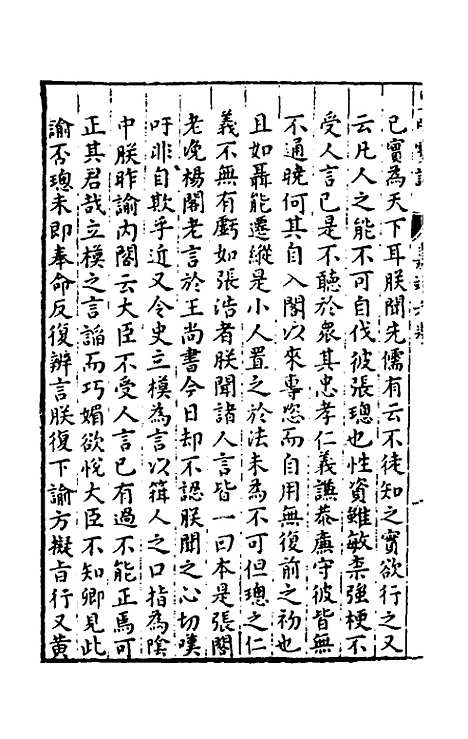 已實為天下耳朕聞先儒有云不徒知之實欲行之又
云凡人之能不可自伐彼張璁也性資雖敏柰強梗不
受人言已是不聽於眾其忠孝仁義謙恭廉守彼皆無
不通曉何其自入閣以來專恣而自用無復前之初也
且如聶能遷縱是小人置之於法未為不可但璁之仁
義不無有虧如張浩者朕聞諸人言皆一曰本是張閣
老浼楊閣老言於王尚書今日却不認朕聞之心切嘆
吁非自欺乎近又令史立模為言以箝人之口指為陰
中朕昨諭內閣云大臣不受人言已有過不能正焉可
正其君哉立模之言謟而巧媚欲悅大臣不知卿見此
諭否璁未即奉命反復辨言朕復下諭方擬旨行又黃